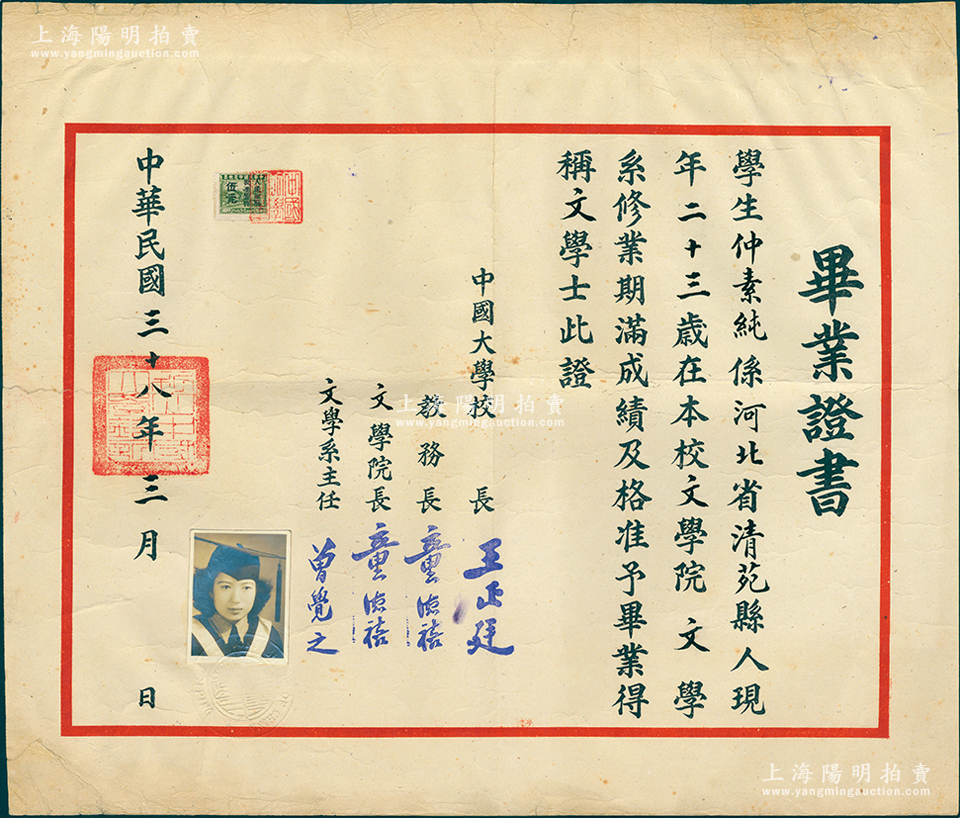 上海陽明拍賣
www.yangmingauction.com
畢業證書
學生仲素純係河北省清苑縣人現
年二十三歲在本校文學院文學
系修業期滿成績及格准予畢業得
稱文學士此證
中國大學校長王正廷
教務長童德禧
文學院長童德禧
文學系主任曾覺之
伍元
中華民國三十八年三月 日
上海陽明拍賣
www.yangmingauction.com
上海陽明拍賣
www.yangmingauction.com